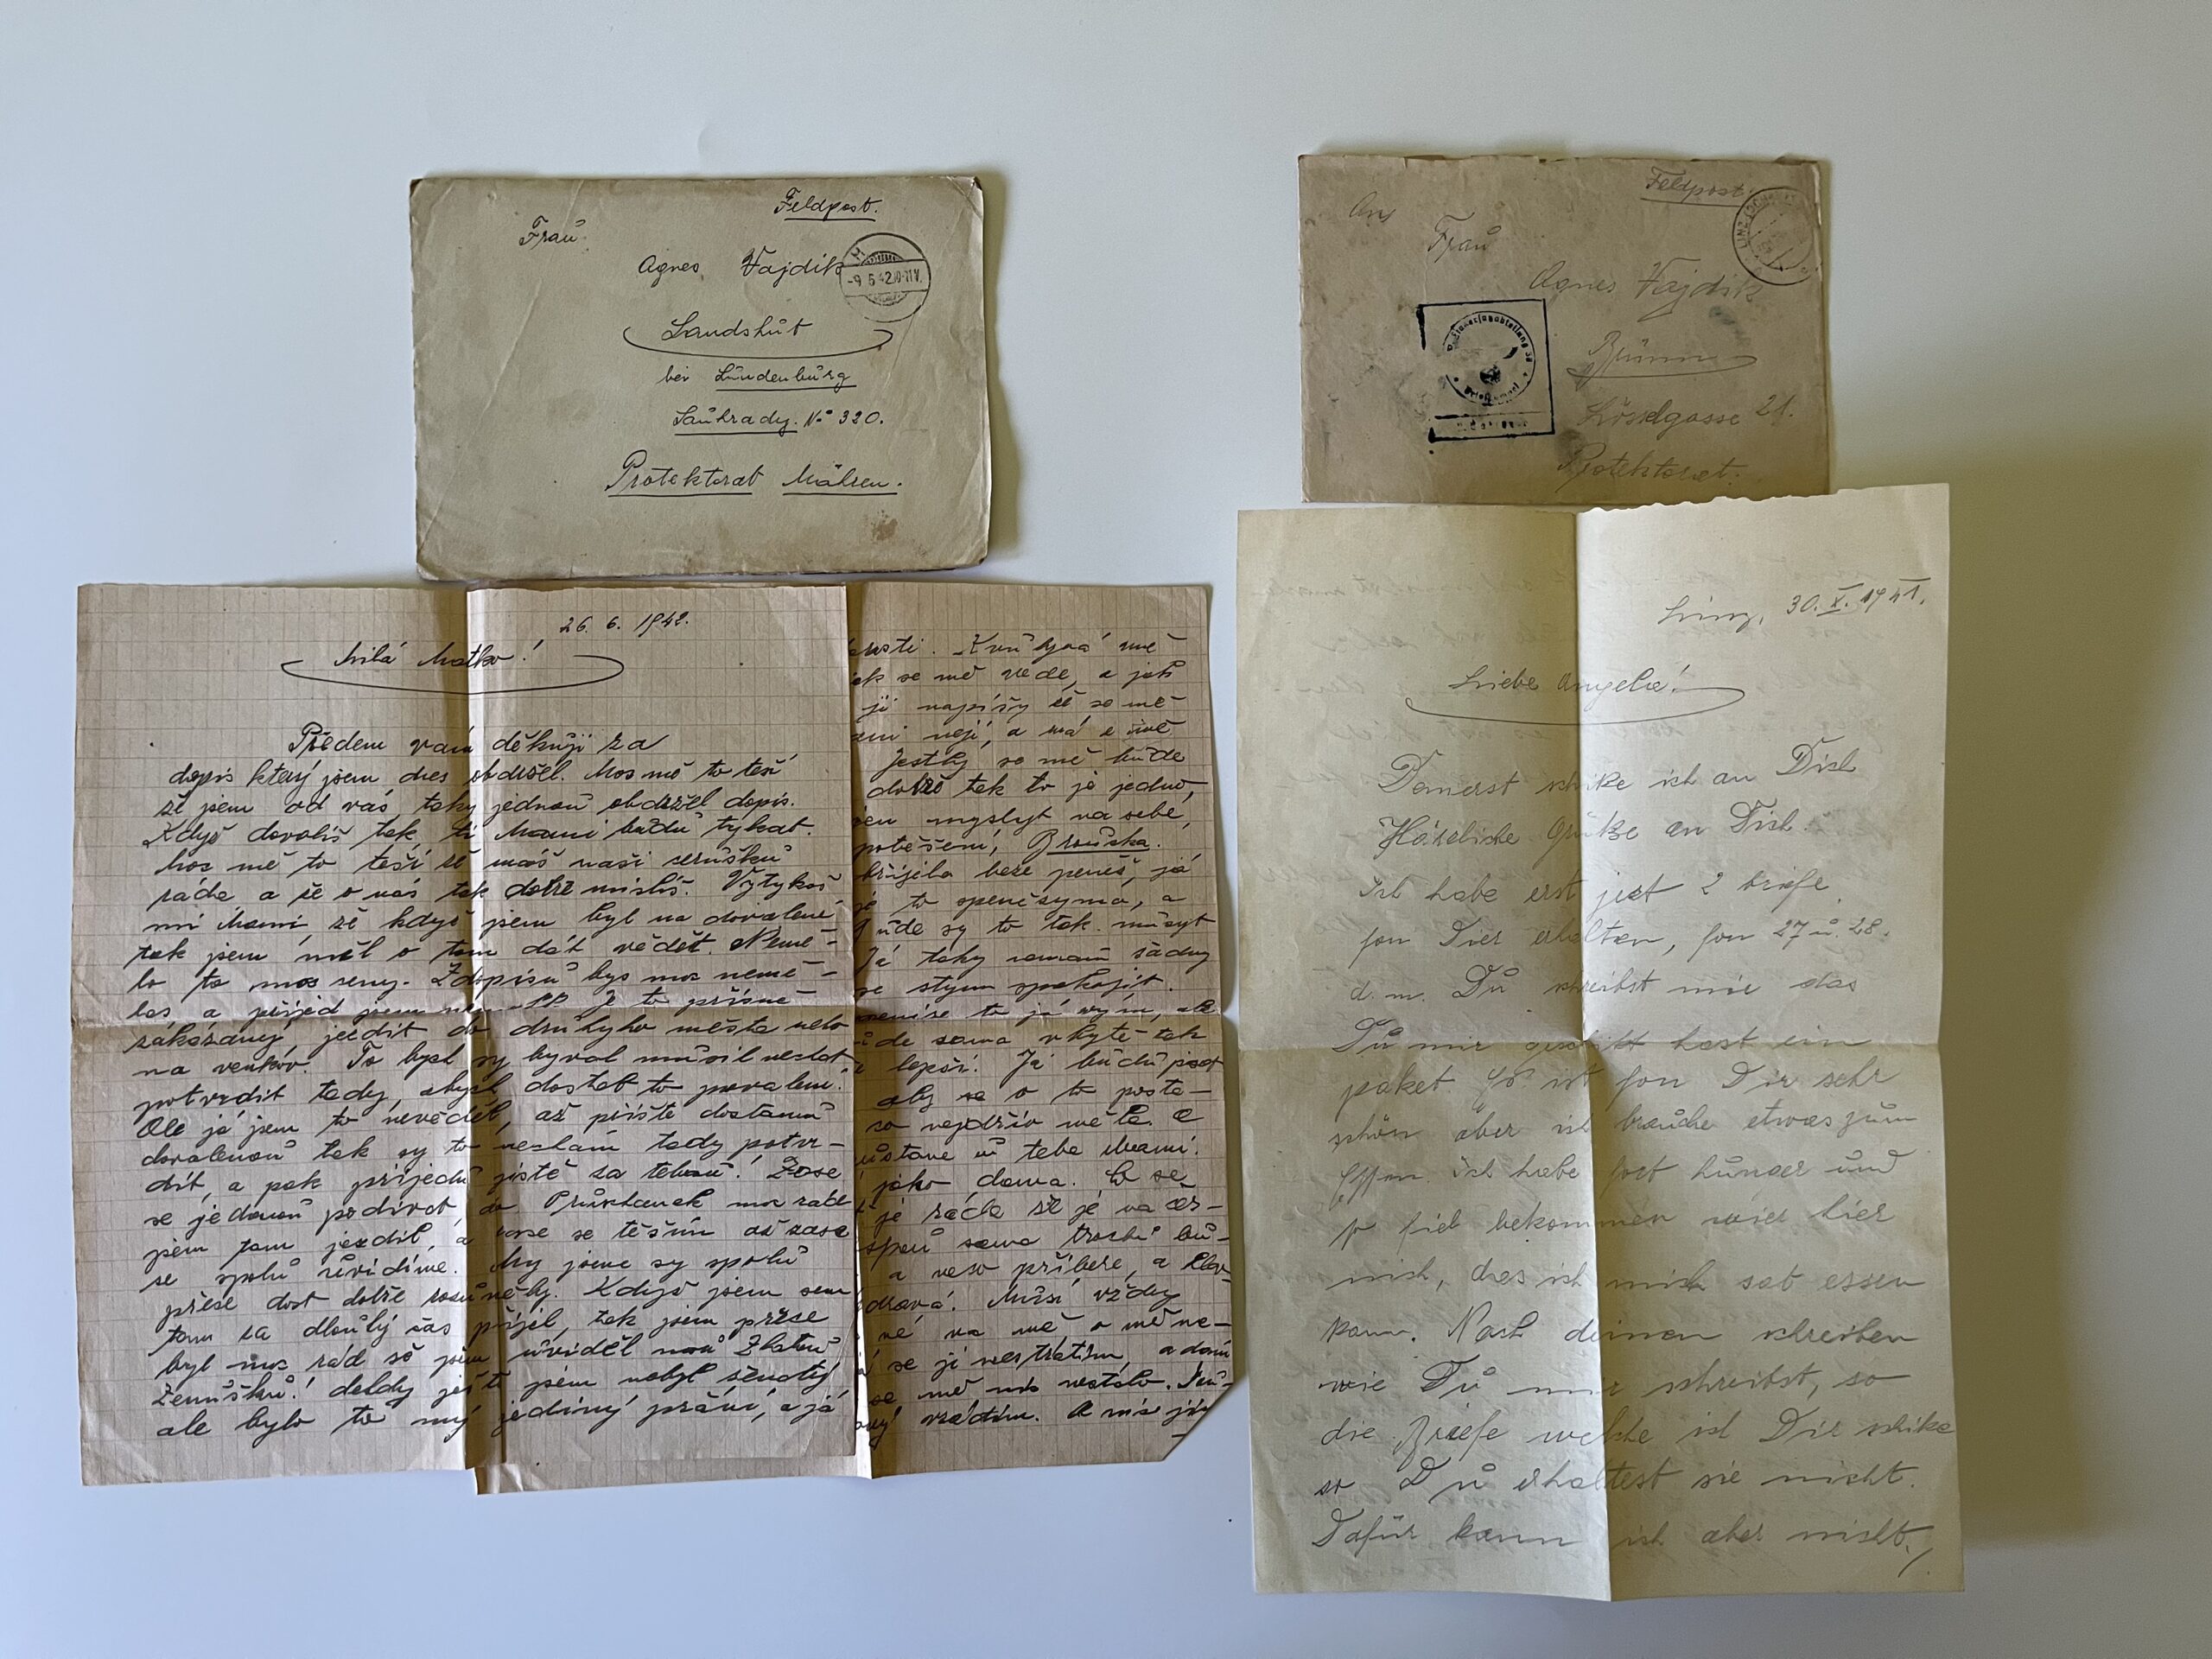 Feldpost.
Fraŭ
Agnes Vajdik
-9.6.42.
Landshŭt
bei Lŭndenbŭrg
Saŭhrady. No 320.
Protektorat Mähren.
Feldpost.
An
Fraŭ
Agnes Vajdik
LINZ
Brünn
21.
Protektorat.
26. 6. 1942.
Milá Matko!
Předem vám děkŭji za
dopis který jsem dnes obdržel. Moc mě to teší
že jsem od vás taky jednoŭ obdržel dopis.
Když dovolíš tak ti Mami bŭdŭ týkat.
Moc mě to teší že máš naši ženŭškŭ
ráda a že o nás tak dobře mislíš. Vytykáš
mi Mami, že když jsem byl na dovolené
tak jsem měl o tom dát vědět. Nemě-
lo to moc ceny. Z dopisŭ bys moc nemě-
la, a přijed jsem je to přísně
zakázaný, jezdit do drŭhyho města nebo
na venkov. To bych sy byval mŭsil nechat
potvrdit tady, abych dostal to povolení.
Ale já jsem to nevěděl, až příště dostanŭ
dovolenoŭ tak sy to nechám tady potvr-
dit, a pak přijedŭ jistě za teboŭ! Zase
se jednoŭ podívat, do Prŭschanek moc rád
jsem tam jezdil, a zase se těším až zase
se spolŭ ŭvidíme. My jsme sy spolŭ
přece dost dobře rozŭměly. Když jsem sem
tam za dloŭhý čas přijel, tak jsem přece
byl moc rád že jsem ŭviděl moŭ Zlatoŭ
Ženŭškŭ! tehdy ještě jsem nebyl ženatý
ale bylo to mý jediný přání, a já
mě
ak se mě vede, a jak
jí napíšy že se mě
ani nejí, a má o mě
Jestly se mě bŭde
dobře tak to je jedno,
jen myslyt na sebe,
potěšení, Broŭčka.
bere peněz, já
to a
bŭde sy to tak mŭsyt
Já taky nemám žádný
se stym spokojit.
to já vym, ale
bŭde sama v bytě tak
lepší. Já bŭdŭ psat
aby se o to posta-
co nejdřív měla. A
zŭstane ŭ tebe Mami.
jako doma. To se
je ráda že je na čer-
spoň sama trochŭ
a neco přibere, a
zdravá. Mŭsí vždy
na mě a mě ne-
se jí neztratím, a domŭ
se mě nic nestalo.
vrátím. A
Linz, 30. X. 1941.
Liebe Angela!
Vorerst schike ich an Dich
Härzliche Grüße an Dich.
Ich habe erst jezt 2 briefe
fon Dier erhalten, fon 27 ŭ. 28.
d. m. Dŭ schreibst mir das
Dŭ mir geschikt hast ein
paket. Es ist fon Dir sehr
schön aber ich braŭche etwas zŭm
Essen. Ich habe fort hŭnger ŭnd
so fiel bekommen wier hier
nich, das ich mich sat essen
kann. Nach deinen schreiben
wie Dŭ mir schreibst, so
die Briefe welche ich Dir schike
so Dŭ erhaltest sie nicht.
Dafür kann ich aber nicht.